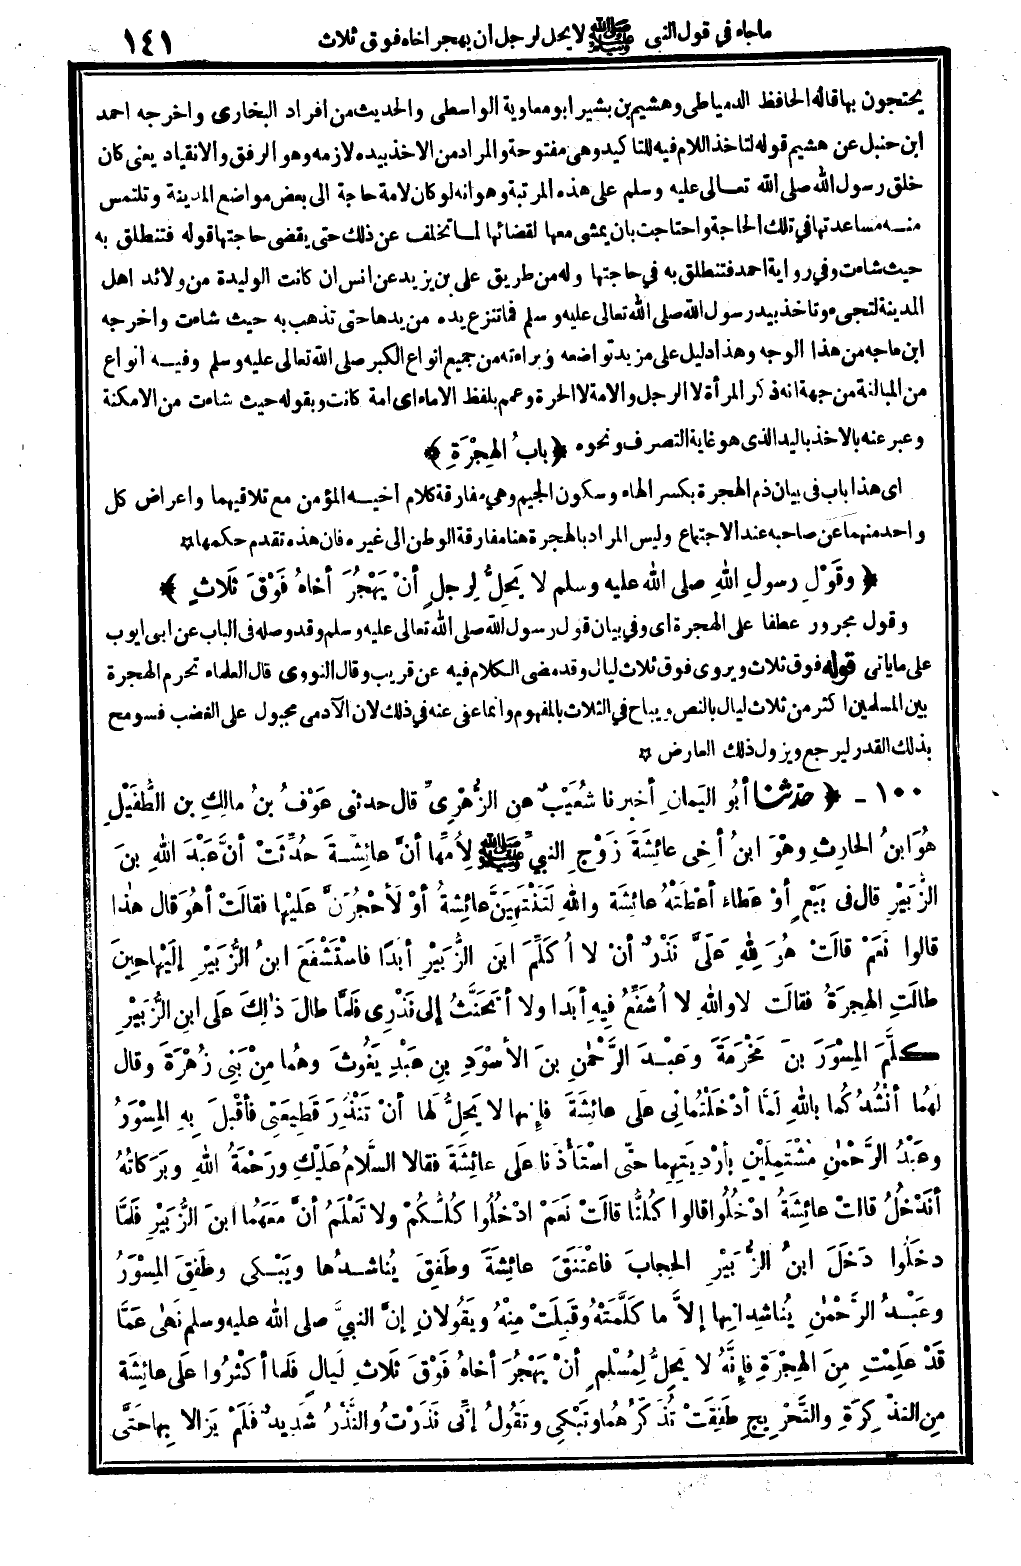 ماجاء في قول النبى ﷺ لا يحل لرجل أن يهجر اخاه فوق ثلاث ١٤١
يحتجون بها قاله الحافظ الدمياطى وهشيم بن بشير ابو معاوية الواسطى والحديث من افراد البخارى واخرجه احمد
ابن حنبل عن هشيم قوله لتاخذ اللام فيه للتاكيد وهى مفتوحة والمراد من الاخذ بيده لازمه وهو الرفق والانقياد يعنى كان
خلق رسول الله صلى الله تعالى عليه وسلم على هذه المرتبة وهو انه لو كان لامة حاجة الى بعض مواضع المدينة وتلتمس
منه مساعدتها في تلك الحاجة واحتاجت بان يمشى معها لقضائها لما تخلف عن ذلك حتى يقضى حاجتها قوله فتنطلق به
حيث شاءت وفي رواية احمد فتنطلق به في حاجتها وله من طريق على بن يزيد عن انس ان كانت الوليدة من ولائد اهل
المدينة لتجىء وتاخذ بيد رسول الله صلى الله تعالى عليه وسلم فما تنزع يده من يدها حتى تذهب به حيث شاءت واخرجه
ابن ماجه من هذا الوجه وهذا دليل على مزيد تواضعه وبراءته من جميع انواع الكبر صلى الله تعالى عليه وسلم وفيه أنواع
من المبالغة من جهة انه ذكر المرأة لا الرجل والامة لا الحرة وعمم بلفظ الاماء اى امة كانت وبقوله حيث شاءت من الامكنة
وعبر عنه بالاخذ باليد الذى هو غاية التصرف ونحوه ﴿ بابُ الهِجْرَةِ ﴾
اى هذا باب فى بيان ذم الهجرة بكسر الهاء وسكون الجيم وهي مفارقة كلام أخيه المؤمن مع تلاقيهما واعراض كل
واحد منهما عن صاحبه عند الاجتماع وليس المراد بالهجرة هنا مفارقة الوطن الى غيره فان هذه تقدم حكمها ✡
﴿ وقَوْلِ رسولِ اللهِ صلى الله عليه وسلم لا يَحِلُّ لِرجلٍ أنْ يَهْجُرَ أخاهُ فَوْقَ ثَلاثٍ ﴾
وقول مجرور عطفا على الهجرة اى وفي بيان قول رسول الله صلى الله تعالى عليه وسلم وقد وصله فى الباب عن ابى ايوب
على ما ياتى قوله فوق ثلاث ويروى فوق ثلاث ليال وقد مضى الكلام فيه عن قريب وقال النووى قال العلماء تحرم الهجرة
بين المسلمين اكثر من ثلاث ليال بالنص ويباح في الثلاث بالمفهوم وانما عفى عنه في ذلك لان الآدمى مجبول على الغضب فسومح
بذلك القدر ليرجع ويزول ذلك العارض ✡
١٠٠ - ﴿ حدثنا أبُو اليَمانِ أخبرنا شُعَيْبٌ عنِ الزُّهْرِىِّ قال حدثنى عَوْفُ بنُ مالِكِ بنِ الطُّفَيْلِ
هُوَ ابنُ الحارِثِ وهْوَ ابنُ أخِى عائِشَةَ زَوْجِ النبيِّ ﷺ لِأُمِّها أنَّ عائِشَةَ حُدِّثَتْ أنَّ عَبْدَ اللهِ بنَ
الزُّبَيْرِ قال فى بَيْعٍ أوْ عَطاءٍ أعْطَتْهُ عائِشَةُ واللهِ لَتَنْتَهِيَنَّ عائِشةُ أوْ لَأَحْجُرَنَّ عَلَيْها فقالَتْ أهُوَ قال هذا
قالوا نَعَمْ قالَتْ هُوَ لِلّٰهِ عَلَىَّ نَذْرٌ أنْ لا أُكَلِّمَ ابنَ الزُّبَيْرِ أبَدًا فاسْتَشْفَعَ ابنُ الزُّبَيْرِ إلَيْها حِينَ
طالَتِ الهِجرَةُ فقالَتْ لا واللهِ لا أُشَفِّعُ فِيهِ أبَدا ولا أتَحَنَّثُ إلى نَذْرِى فَلمَّا طالَ ذٰلِكَ عَلَى ابنِ الزُّبَيْرِ
كَلَّمَ المِسْوَرَ بنَ مَخْرَمَةَ وعَبْدَ الرَّحْمٰنِ بنَ الأسْوَدِ بنِ عَبْدِ يَغُوثَ وهُما مِنْ بَنِى زُهْرَةَ وقال
لهُما أنْشُدُكُما باللهِ لَمَّا أدْخَلْتُمانِي على عائِشَةَ فإنها لا يَحِلُّ لَها أنْ تَنْذُرَ قَطِيعَتِى فأقْبَلَ بِهِ المِسْوَرُ
وعَبْدُ الرَّحْمٰنِ مُشْتَمِلَيْنِ بأرْدِيَتِهِما حتَّى اسْتَأْذَنا على عائِشَةَ فقالا السَّلامُ عَلَيْكِ ورَحْمَةُ اللهِ وبَرَكاتُهُ
أنَدْخُلُ قالتْ عائِشَةُ ادْخُلُوا قالوا كُلُّنا قالتْ نَعَمْ ادْخُلُوا كُلُّكُمْ ولا تَعْلَمُ أنَّ مَعَهُما ابنَ الزُّبَيْرِ فَلَمَّا
دخَلُوا دَخَلَ ابنُ الزُّبَيْرِ الحِجابَ فاعْتَنَقَ عائِشَةَ وطَفِقَ يُناشِدُها ويَبْكى وطَفِقَ المِسْوَرُ
وعَبْدُ الرَّحْمٰنِ يُناشِدانِها إلاَّ ما كَلَّمَتْهُ وقَبِلَتْ مِنْهُ ويَقُولانِ إنَّ النبيَّ صلى الله عليه وسلم نَهٰى عَمَّا
قَدْ عَلِمْتِ مِنَ الهِجْرَةِ فإنَّهُ لا يَحِلُّ لِمُسْلِمٍ أنْ يَهْجُرَ أخاهُ فَوْقَ ثَلاثِ لَيالٍ فَلما أكْثَرُوا عَلَى عائِشَةَ
مِنَ التذْكِرَةِ والتَّحْرِيجِ طَفِقَتْ تُذَكِّرُهُما وتَبْكِى وتَقُولُ إنِّى نَذَرْتُ والنَّذْرُ شَدِيدٌ فَلَمْ يَزالا بِها حَتَّى